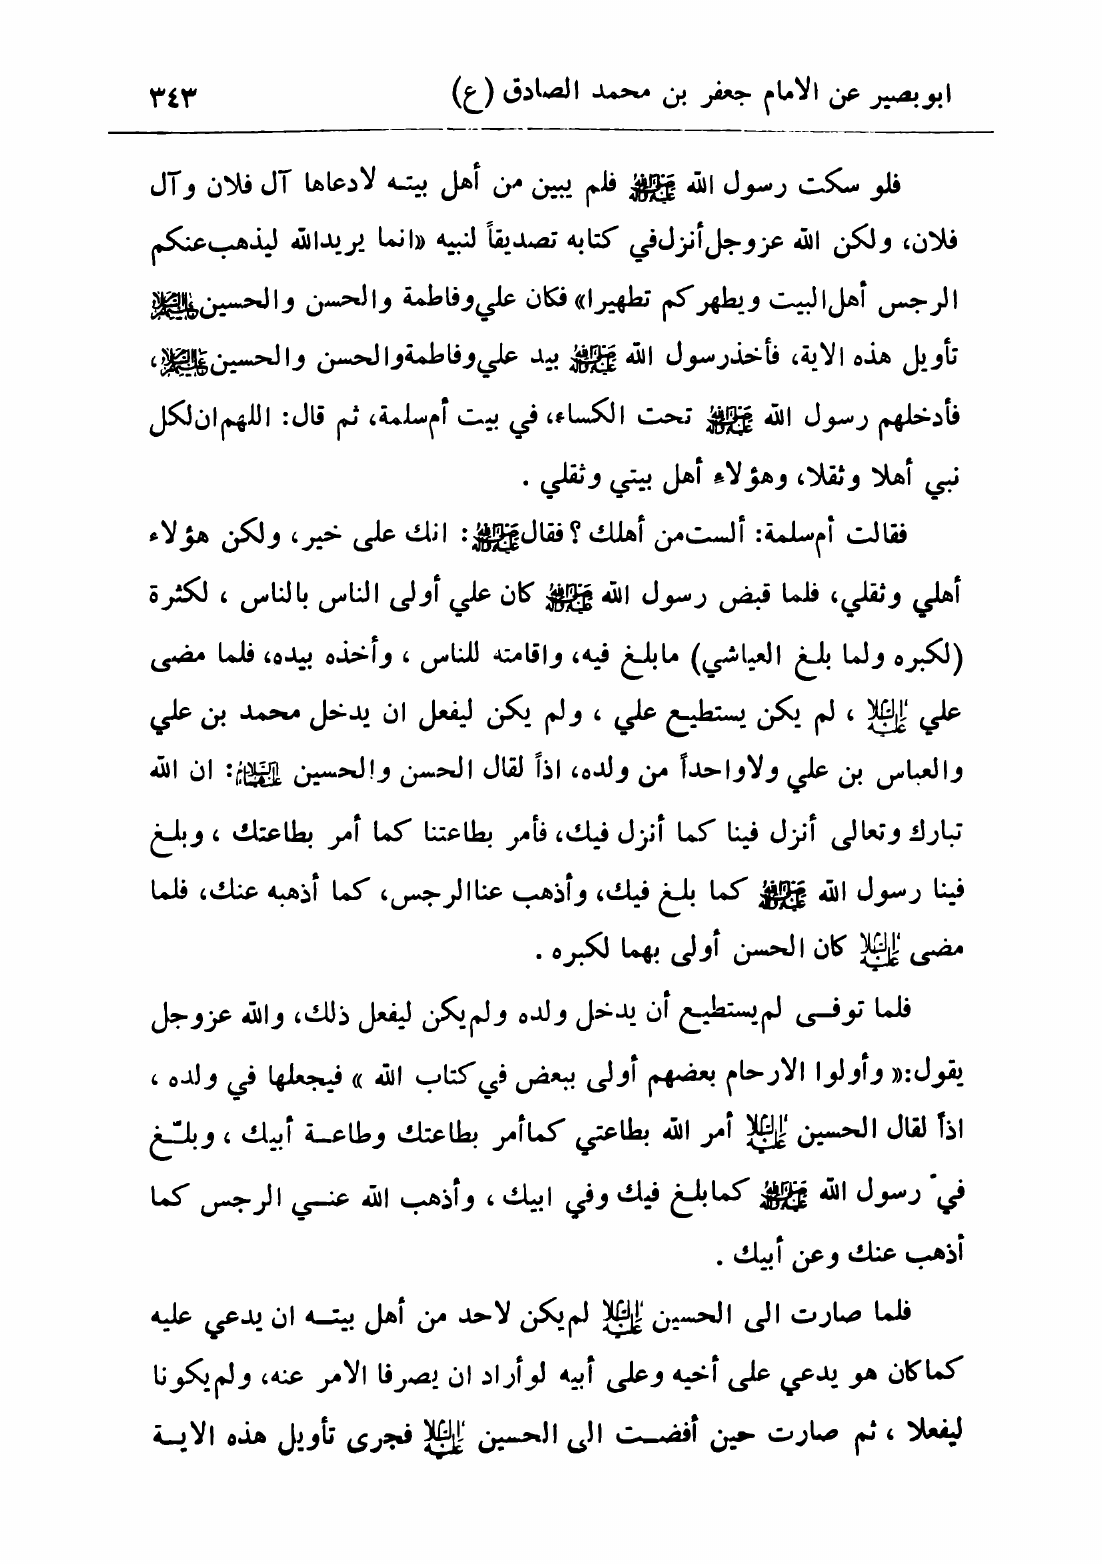 ابوبصير عن الامام جعفر بن محمد الصادق (ع) ٣٤٣
فلو سكت رسول الله ﷺ فلم يبين من أهل بيته لادعاها آل فلان وآل
فلان، ولكن الله عزوجل أنزل في كتابه تصديقاً لنبيه «انما يريد الله ليذهب عنكم
الرجس أهل البيت ويطهركم تطهيرا» فكان علي وفاطمة والحسن والحسين عليهم السلام
تأويل هذه الاية، فأخذ رسول الله ﷺ بيد علي وفاطمة والحسن والحسين عليهم السلام،
فأدخلهم رسول الله ﷺ تحت الكساء، في بيت أم سلمة، ثم قال: اللهم ان لكل
نبي أهلا وثقلا، وهؤلاء أهل بيتي وثقلي .
فقالت أم سلمة: ألست من أهلك ؟ فقال ﷺ: انك على خير، ولكن هؤلاء
أهلي وثقلي، فلما قبض رسول الله ﷺ كان علي أولى الناس بالناس ، لكثرة
(لكبره ولما بلغ العياشي) ما بلغ فيه، واقامته للناس ، وأخذه بيده، فلما مضى
علي عليه السلام ، لم يكن يستطيع علي ، ولم يكن ليفعل ان يدخل محمد بن علي
والعباس بن علي ولا واحداً من ولده، اذاً لقال الحسن والحسين عليهما السلام: ان الله
تبارك وتعالى أنزل فينا كما أنزل فيك، فأمر بطاعتنا كما أمر بطاعتك ، وبلغ
فينا رسول الله ﷺ كما بلغ فيك، وأذهب عنا الرجس، كما أذهبه عنك، فلما
مضى عليه السلام كان الحسن أولى بهما لكبره .
فلما توفى لم يستطيع أن يدخل ولده ولم يكن ليفعل ذلك، والله عزوجل
يقول:« وأولوا الارحام بعضهم أولى ببعض في كتاب الله » فيجعلها في ولده ،
اذاً لقال الحسين عليه السلام أمر الله بطاعتي كما أمر بطاعتك وطاعة أبيك ، وبلّغ
في رسول الله ﷺ كما بلغ فيك وفي ابيك ، وأذهب الله عني الرجس كما
أذهب عنك وعن أبيك .
فلما صارت الى الحسين عليه السلام لم يكن لاحد من أهل بيته ان يدعي عليه
كما كان هو يدعي على أخيه وعلى أبيه لو أراد ان يصرفا الامر عنه، ولم يكونا
ليفعلا ، ثم صارت حين أفضت الى الحسين عليه السلام فجرى تأويل هذه الاية